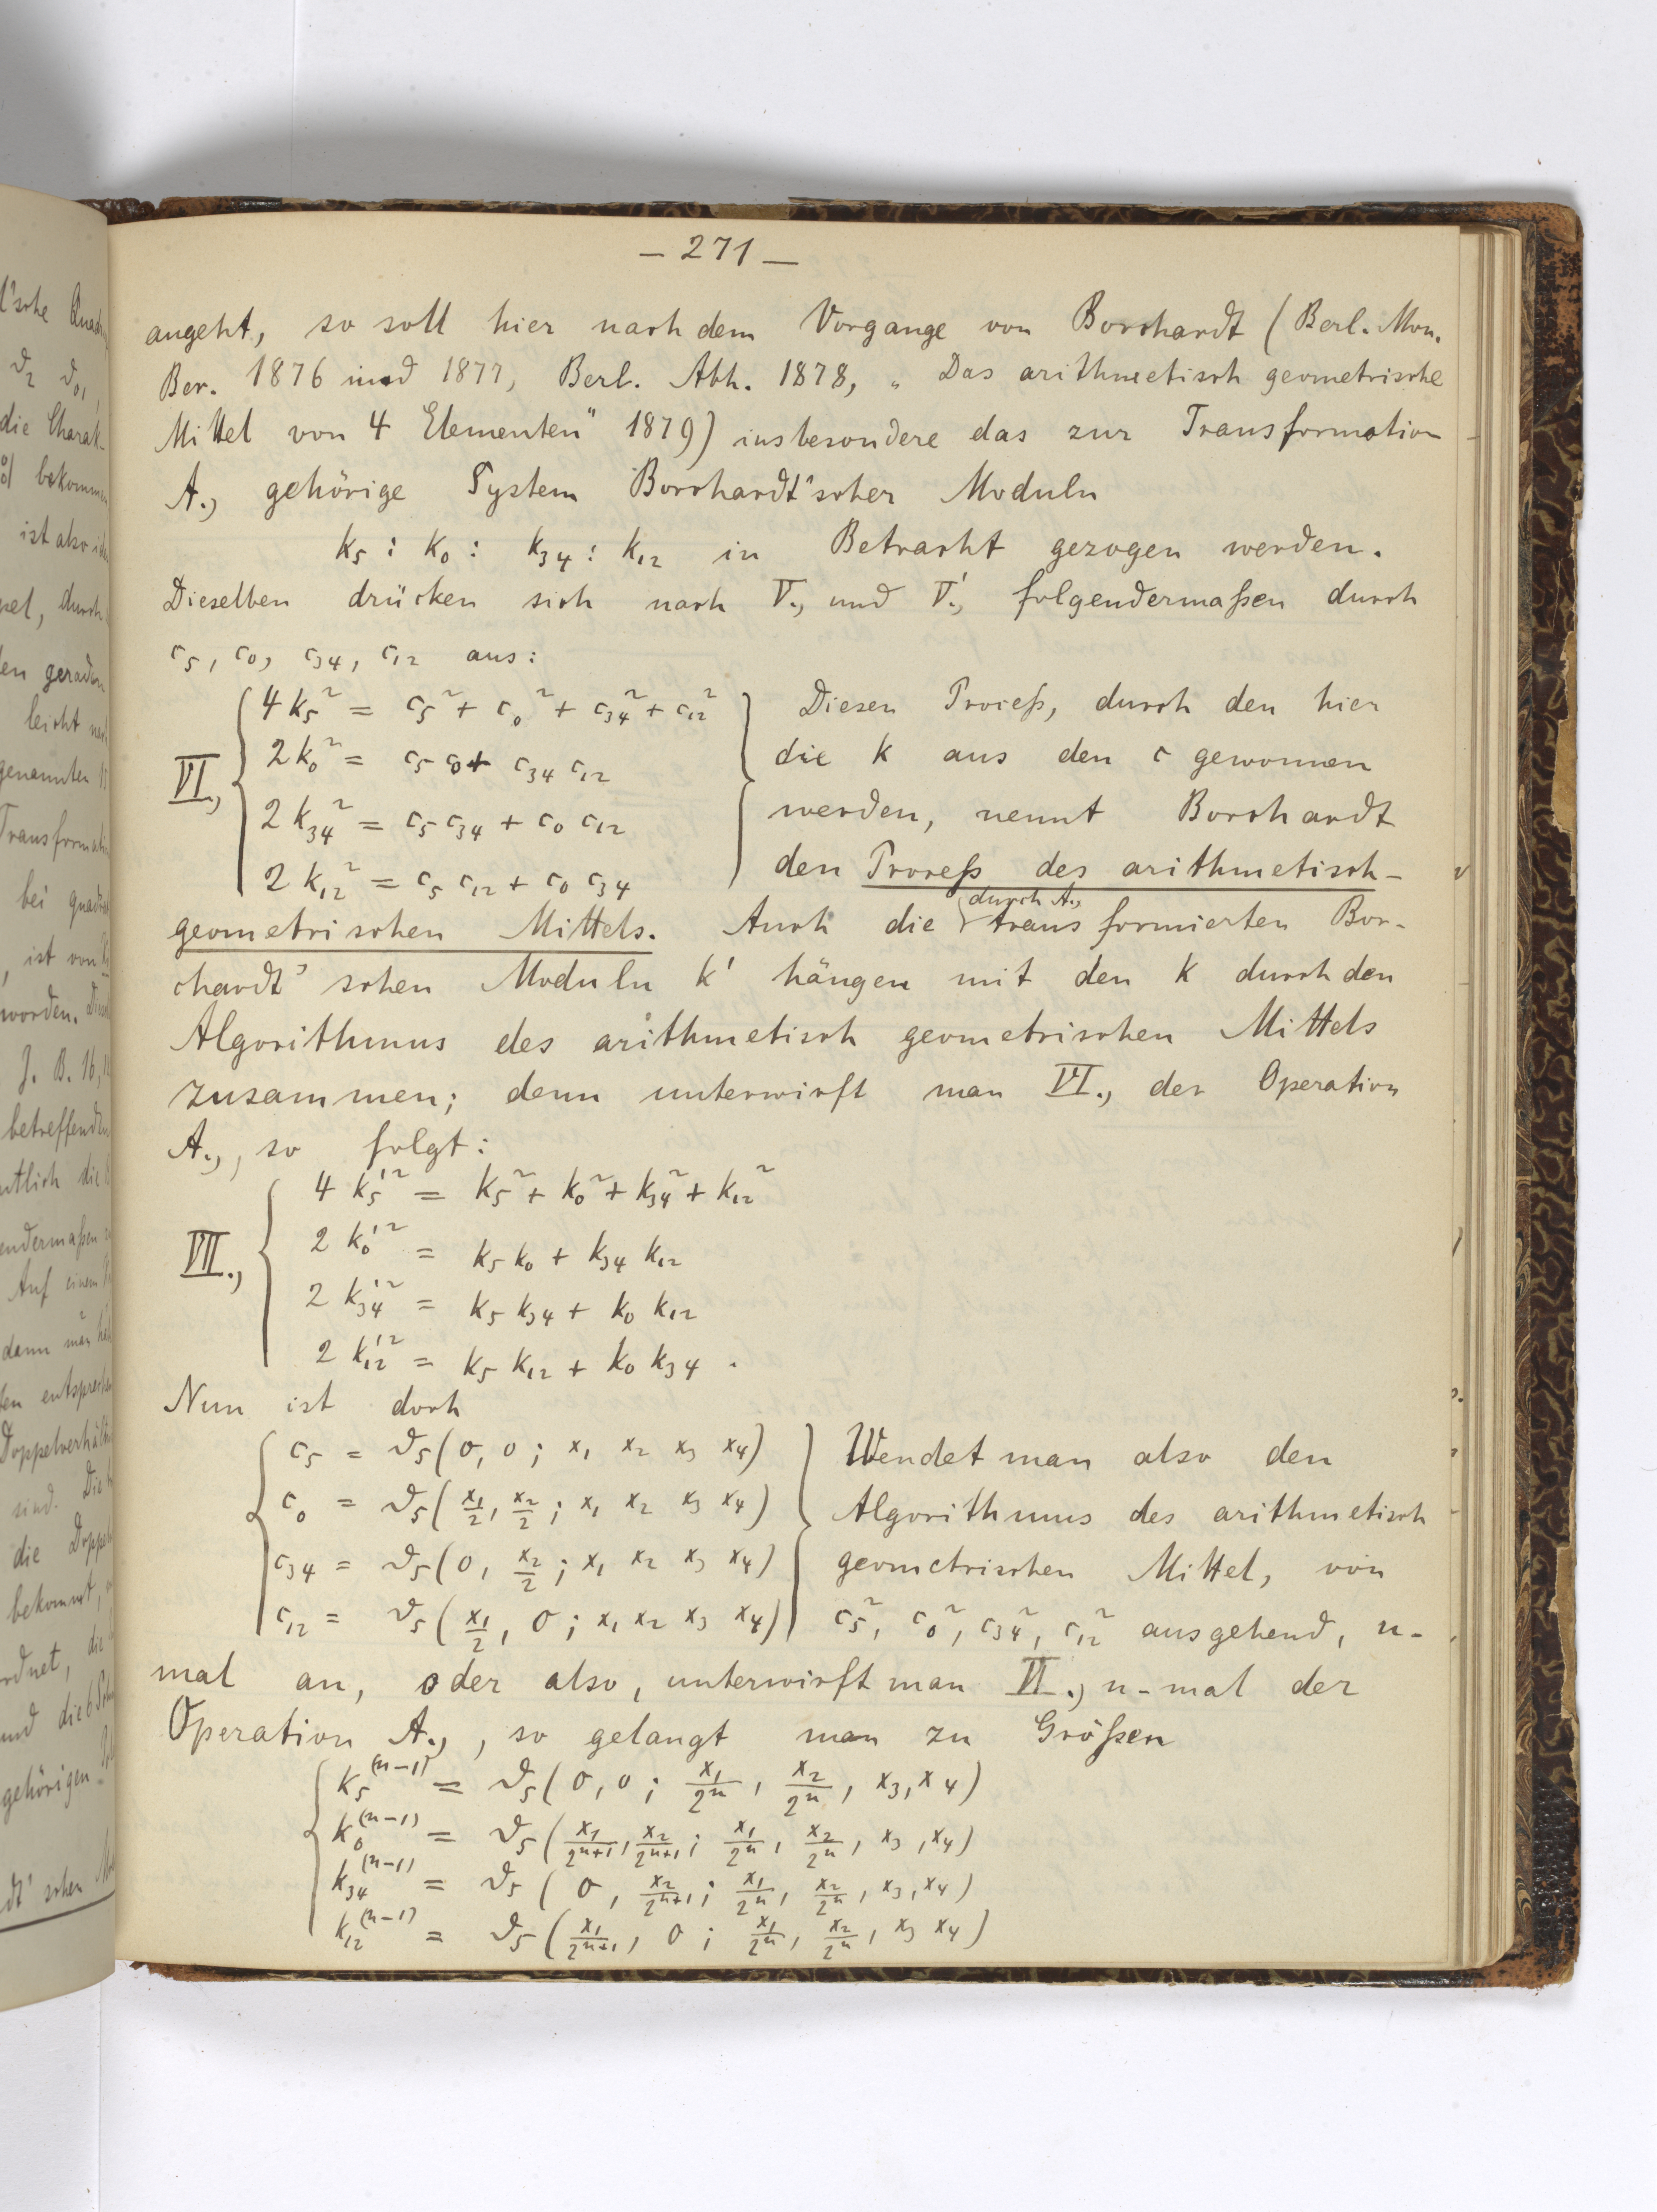 – 271 –
angeht, so soll hier nach dem Vorgange von Borchardt (Berl. Mon.
Ber. 1876 und 1877, Berl. Abh. 1878, „Das arithmetisch geometrische
Mittel von 4 Elementen" 1879) insbesondere das zur Transformation
A., gehörige System Borchardt'scher Moduln
k₅ : k₀ : k₃₄ : k₁₂ in Betracht gezogen werden.
Dieselben drücken sich nach V., und V'., folgendermaßen durch
c₅, c₀, c₃₄, c₁₂ aus:
VI.,
4 k₅² = c₅² + c₀² + c₃₄² + c₁₂²
2 k₀² = c₅ c₀ + c₃₄ c₁₂
2 k₃₄² = c₅ c₃₄ + c₀ c₁₂
2 k₁₂² = c₅ c₁₂ + c₀ c₃₄
Diesen Proceß, durch den hier
die k aus den c gewonnen
werden, nennt Borchardt
den Proceß des arithmetisch-
durch A.,
geometrischen Mittels. Auch die transformierten Bor-
chardt'schen Moduln k' hängen mit den k durch den
Algorithmus des arithmetisch geometrischen Mittels
zusammen; denn unterwirft man VI., der Operation
A., , so folgt:
VII.,
4 k₅'² = k₅² + k₀² + k₃₄² + k₁₂²
2 k₀'² = k₅ k₀ + k₃₄ k₁₂
2 k₃₄'² = k₅ k₃₄ + k₀ k₁₂
2 k₁₂'² = k₅ k₁₂ + k₀ k₃₄ .
Nun ist doch
c₅ = ϑ₅(0, 0 ; x₁ x₂ x₃ x₄)
c₀ = ϑ₅(x₁/2, x₂/2 ; x₁ x₂ x₃ x₄)
c₃₄ = ϑ₅(0, x₂/2 ; x₁ x₂ x₃ x₄)
c₁₂ = ϑ₅(x₁/2, 0 ; x₁ x₂ x₃ x₄)
Wendet man also den
Algorithmus des arithmetisch
geometrischen Mittel, von
c₅², c₀², c₃₄², c₁₂² ausgehend, n-
mal an, oder also, unterwirft man VI., n-mal der
Operation A., , so gelangt man zu Größen
k₅⁽ⁿ⁻¹⁾ = ϑ₅(0, 0 ; x₁/2ⁿ, x₂/2ⁿ, x₃, x₄)
k₀⁽ⁿ⁻¹⁾ = ϑ₅(x₁/2ⁿ⁺¹, x₂/2ⁿ⁺¹ ; x₁/2ⁿ, x₂/2ⁿ, x₃, x₄)
k₃₄⁽ⁿ⁻¹⁾ = ϑ₅(0, x₂/2ⁿ⁺¹ ; x₁/2ⁿ, x₂/2ⁿ, x₃, x₄)
k₁₂⁽ⁿ⁻¹⁾ = ϑ₅(x₁/2ⁿ⁺¹, 0 ; x₁/2ⁿ, x₂/2ⁿ, x₃ x₄)